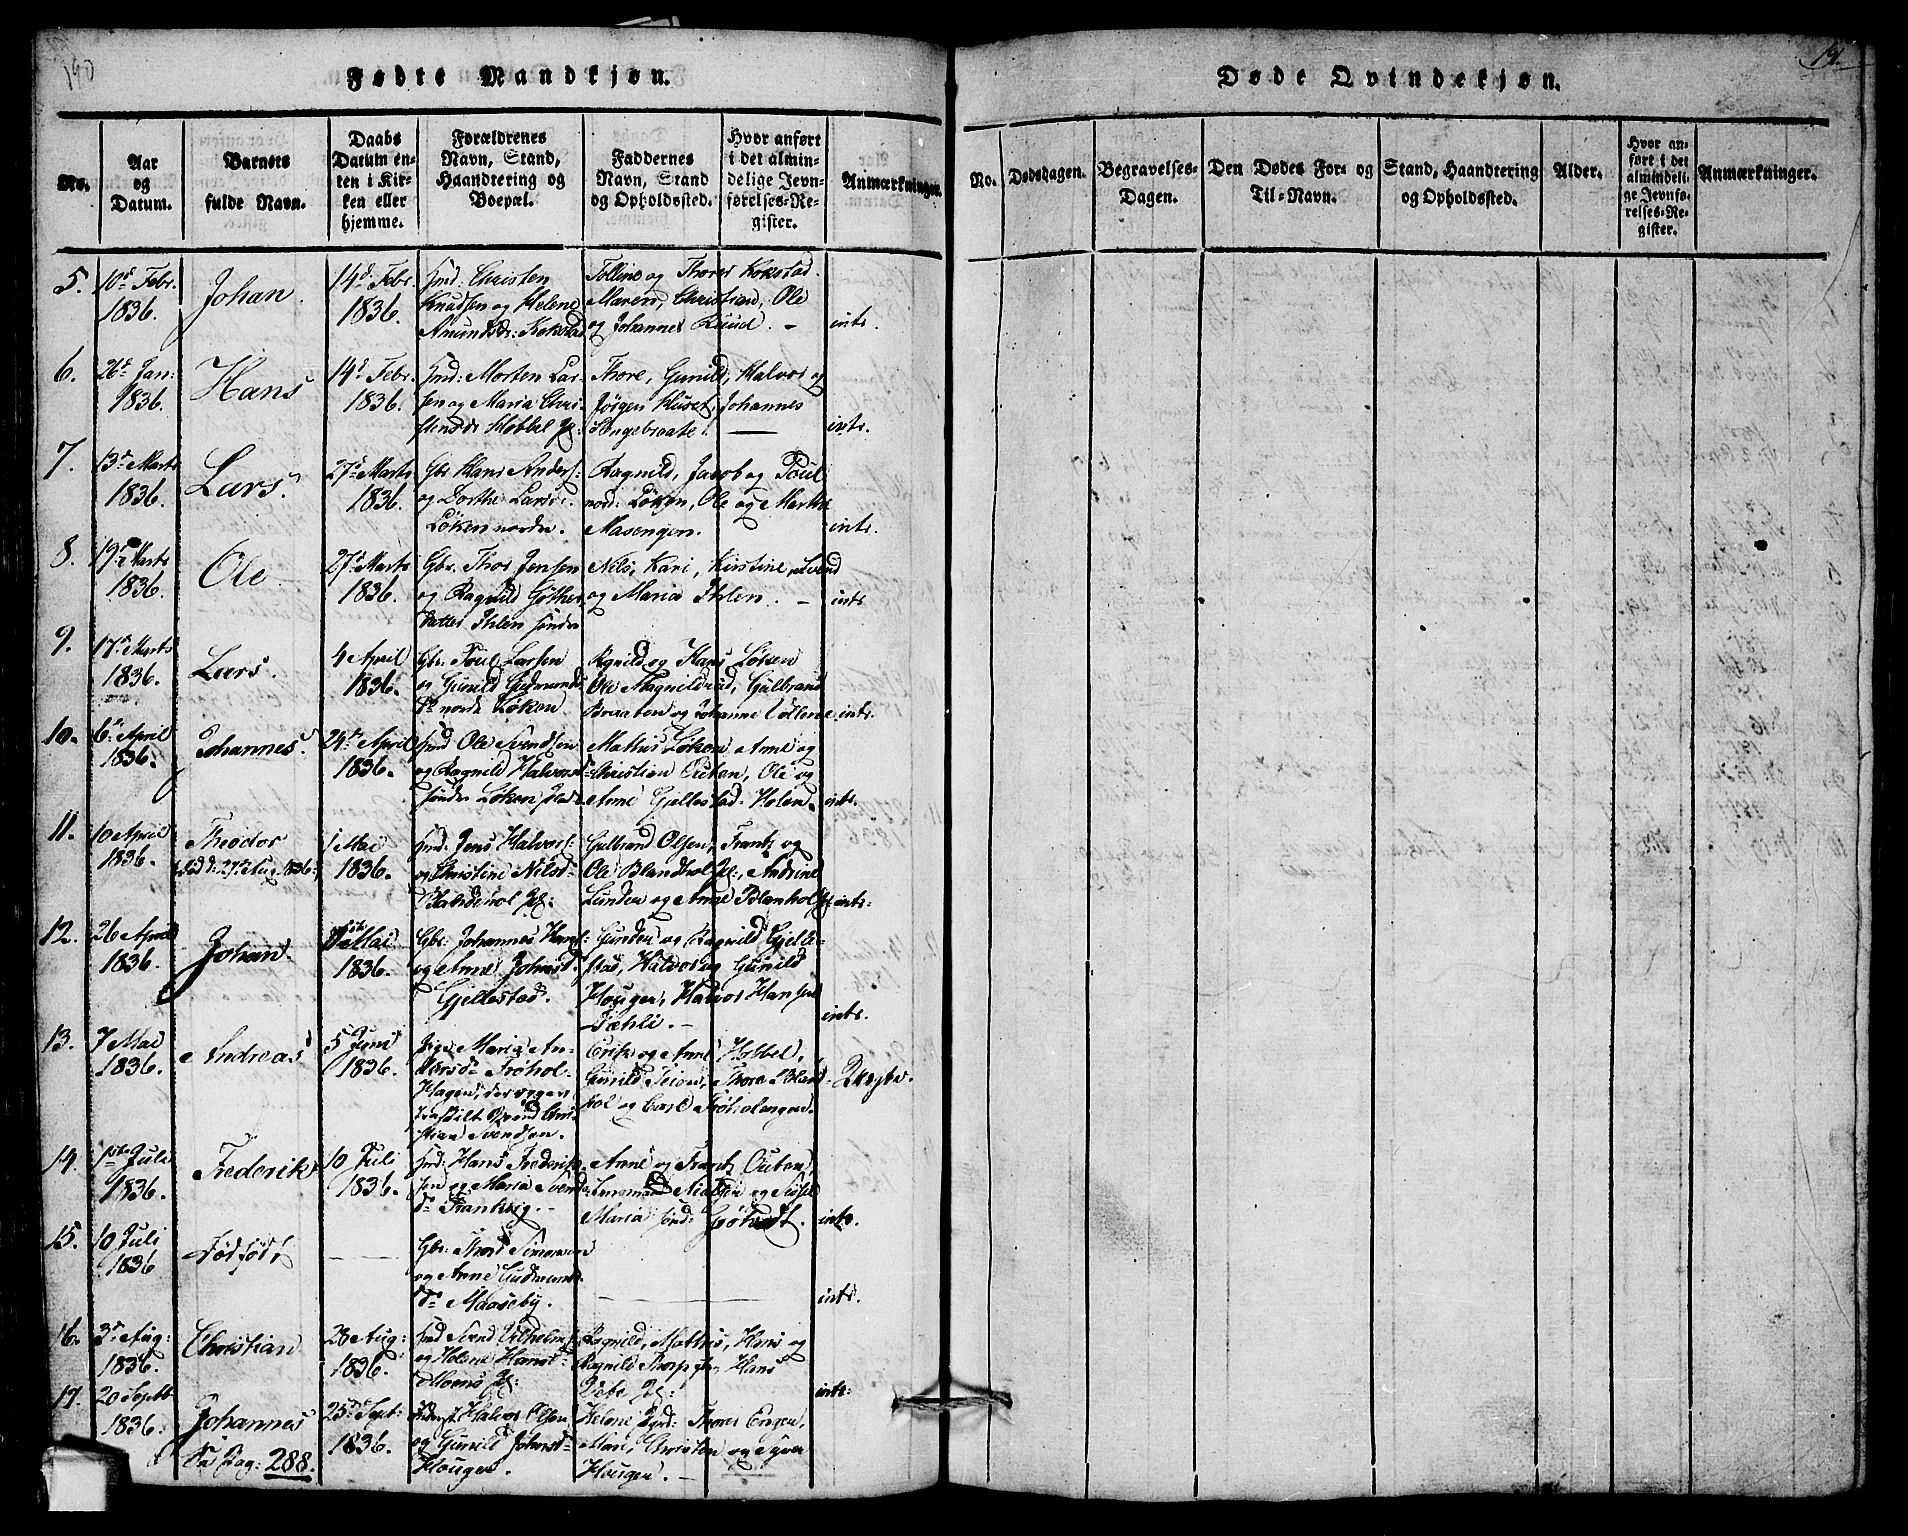 190
Fødte Mandkjøn.
No.
Aar
og
Datum.
Barnets
fulde Navn.
Daabs
Datum en-
ten i Kir-
ken eller
hjemme.
Forældrenes
Navn, Stand,
Haandtering og
Boepæl.
Faddernes
Navn, Stand
og Opholdssted.
Hvor anført
i det almin-
delige Jevn-
førelses-Re-
gister.
Anmærkninger.
5.
10d Febr.
1836.
Johan.
14d. Febr.
1836.
Christen
Knudsen og Helene
Amundsdr: Kokstad
Tolline og Thores Kokstad.
Maren, Christian, Ole
og Johannes Ruud. –
ints.
6.
26d Jan:
1836.
Hans
14d. Febr.
1836.
Morten Lar-
sen og Maria Chri-
stensdr Høbbel
Thore, Gunild, Halvor og
Jørgen Huset, Johannes
Engebraate. —
ints.
7.
13d Marts
1836.
Lars.
27d Marts
1836.
Gbr. Hans Anders:
og Dorthe Larsd:
Løken nordre.
Ragnild, Jacob og Poul
nord: Løken, Ole og Marthe
Masengen.
ints.
8.
19d Marts
1836.
Ole.
27d Marts
1836.
Gbr. Thor Jensen
og Ragnild
Datter Ihlen søndre
Nils, Kari, Kirstine, Svend
og Maria Ihlen. –
ints.
9.
17d Marts
1836.
Lars.
4 April
1836.
Gbr: Poul Larsen
og Gunild Gudmunds
Dr nordr Løken
Ragnild og Hans Løken
Ole Magnildrud, Gulbrand
Braaten og Johanne Vollene
ints.
10.
6te April
1836.
Johannes.
24de April
1836.
Ole Svendsen
og Ragnild Halvorsd:
søndre Løken
Mathis Løken Anne og
Christian Outen, Ole og
Anne Gjellestad. Holen.
ints.
11.
10 April
1836.
Theodor
Død d: 27de Aug. 1836.
1 Mai
1836.
Jens Halvors:
og Christine Nilsd:
Gulbrand Olsen, Frantz og
Ole Blandhol Andrine
Lunder og Anne Blanhol
ints.
12.
26 April
1836.
Johan.
Mai
1836.
Gbr: Johannes Hans:
og Anne Johnsd.
Gjellestad.
Gunder og Ragnild Gjelle-
stad, Halvor og Gunild
Hougen, Halvor Hansen
Tæhli. –
ints.
13.
7 Mai
1836.
Andreas
5 Juni
1836.
Pige Maria An-
dersdr Frøhol-
Hagen,
Svend Chri-
stian Svendsen.
Erik og Anne Høbbel,
Gunild Teien, Thore Bland-
hol og Carl Frøholangen.
14.
1ste Juli
1836.
Frederik
10 Juli
1836.
Hans Frederik-
sen og Maria Svends-
dr Frankrig. –
Anne og Frantz Outen,
Nielsen og Sidsel
Maria
ints.
15.
10 Juli
1836
Dødfødt
—
Gbr: Thord Simonsen
og Anne Gudmunds-
dr Maaseby.
—
ints.
16.
3d Aug:
1836.
Christian
28 Aug:
1836.
Svend Vilhelms:
og Helene Hansd:
Moens
Ragnild, Mathis, Hans og
Ragnild Thorp Hans
ints:
17.
20 Septb
1836.
Johannes
Pag: 288.
25de Sept:
1836.
Halvor Olsen
og Gunild Johnsd:
Hougen.
Helene Thores Engen,
Mari, Christen og Syver
Hougen. –
191.
Døde Qvindekjøn.
No.
Dødsdagen.
Begravelses-
Dagen.
Den Dødes For- og
Til-Navn.
Stand, Haandtering
og Opholdssted.
Alder.
Hvor an-
ført i det
almindeli-
ge Jevnfø-
relses-Re-
gister.
Anmærkninger.